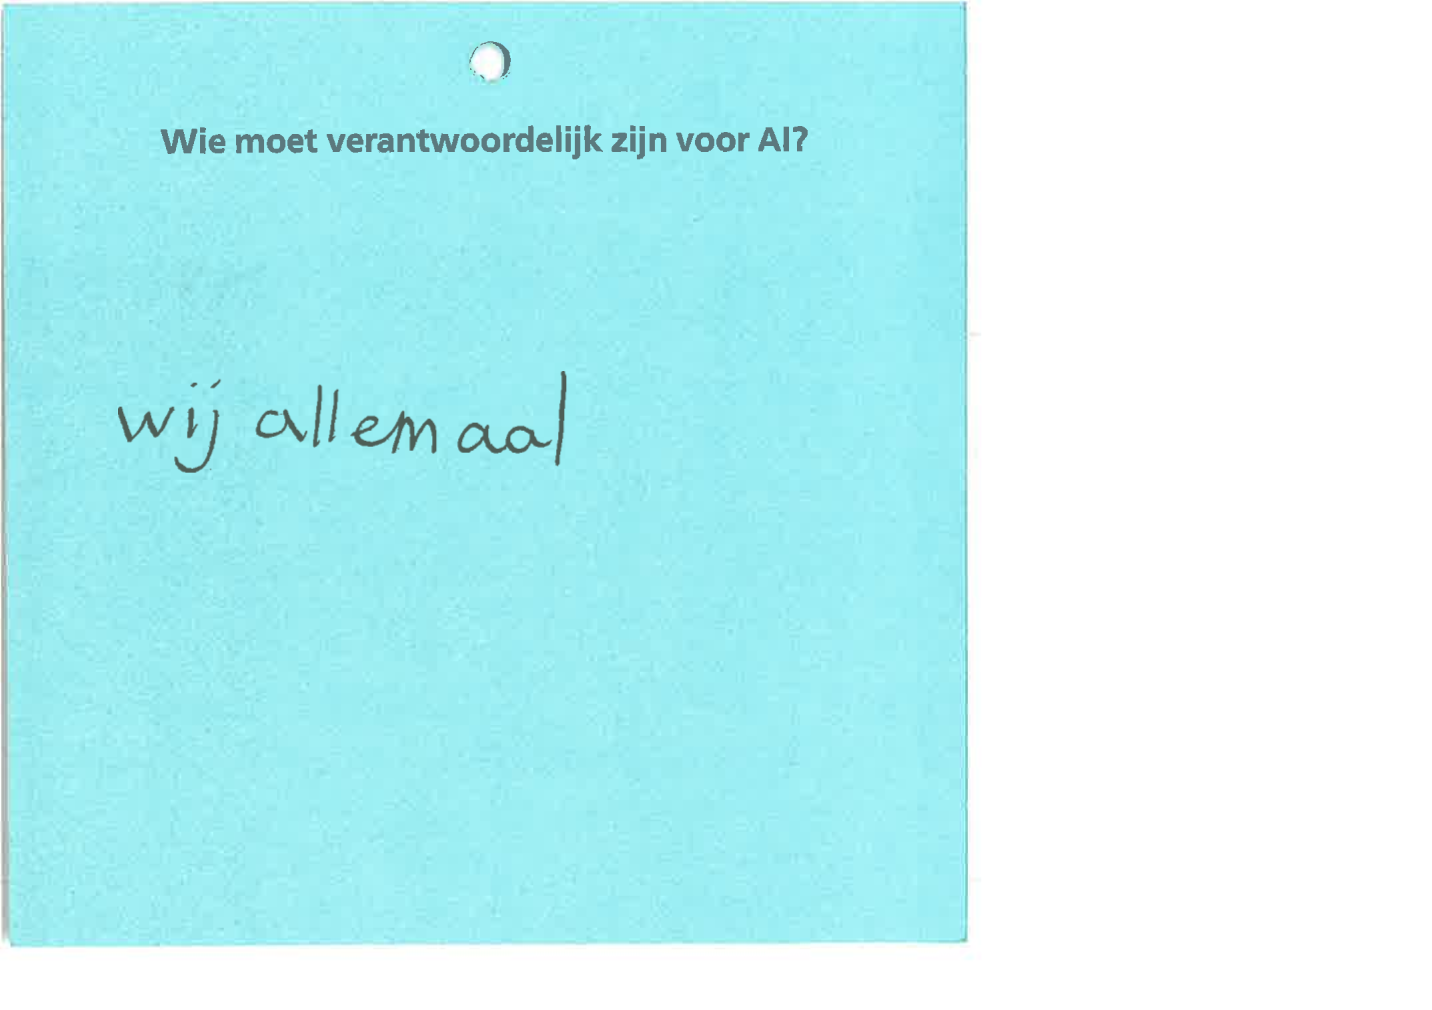 Wie moet verantwoordelijk zijn voor AI?
wij allemaal